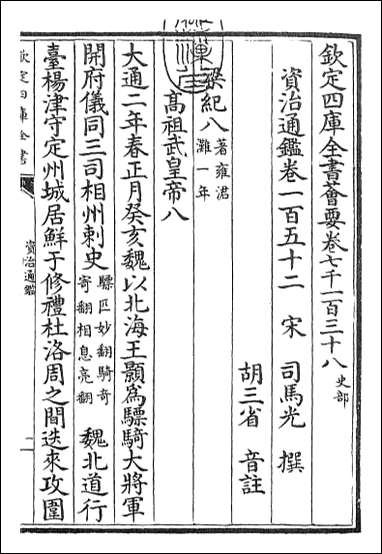 欽定四庫全書薈要卷七千一百三十八 史部
資治通鑑卷一百五十二 宋 司馬光 撰
胡三省 音註
梁紀八 著雍涒灘一年
高祖武皇帝八
大通二年春正月癸亥魏以北海王顥為驃騎大將軍
開府儀同三司相州刺史 驃匹妙翻騎奇寄翻相息亮翻 魏北道行
臺楊津守定州城居鮮于修禮杜洛周之間迭來攻圍
欽定四庫全書
資治通鑑